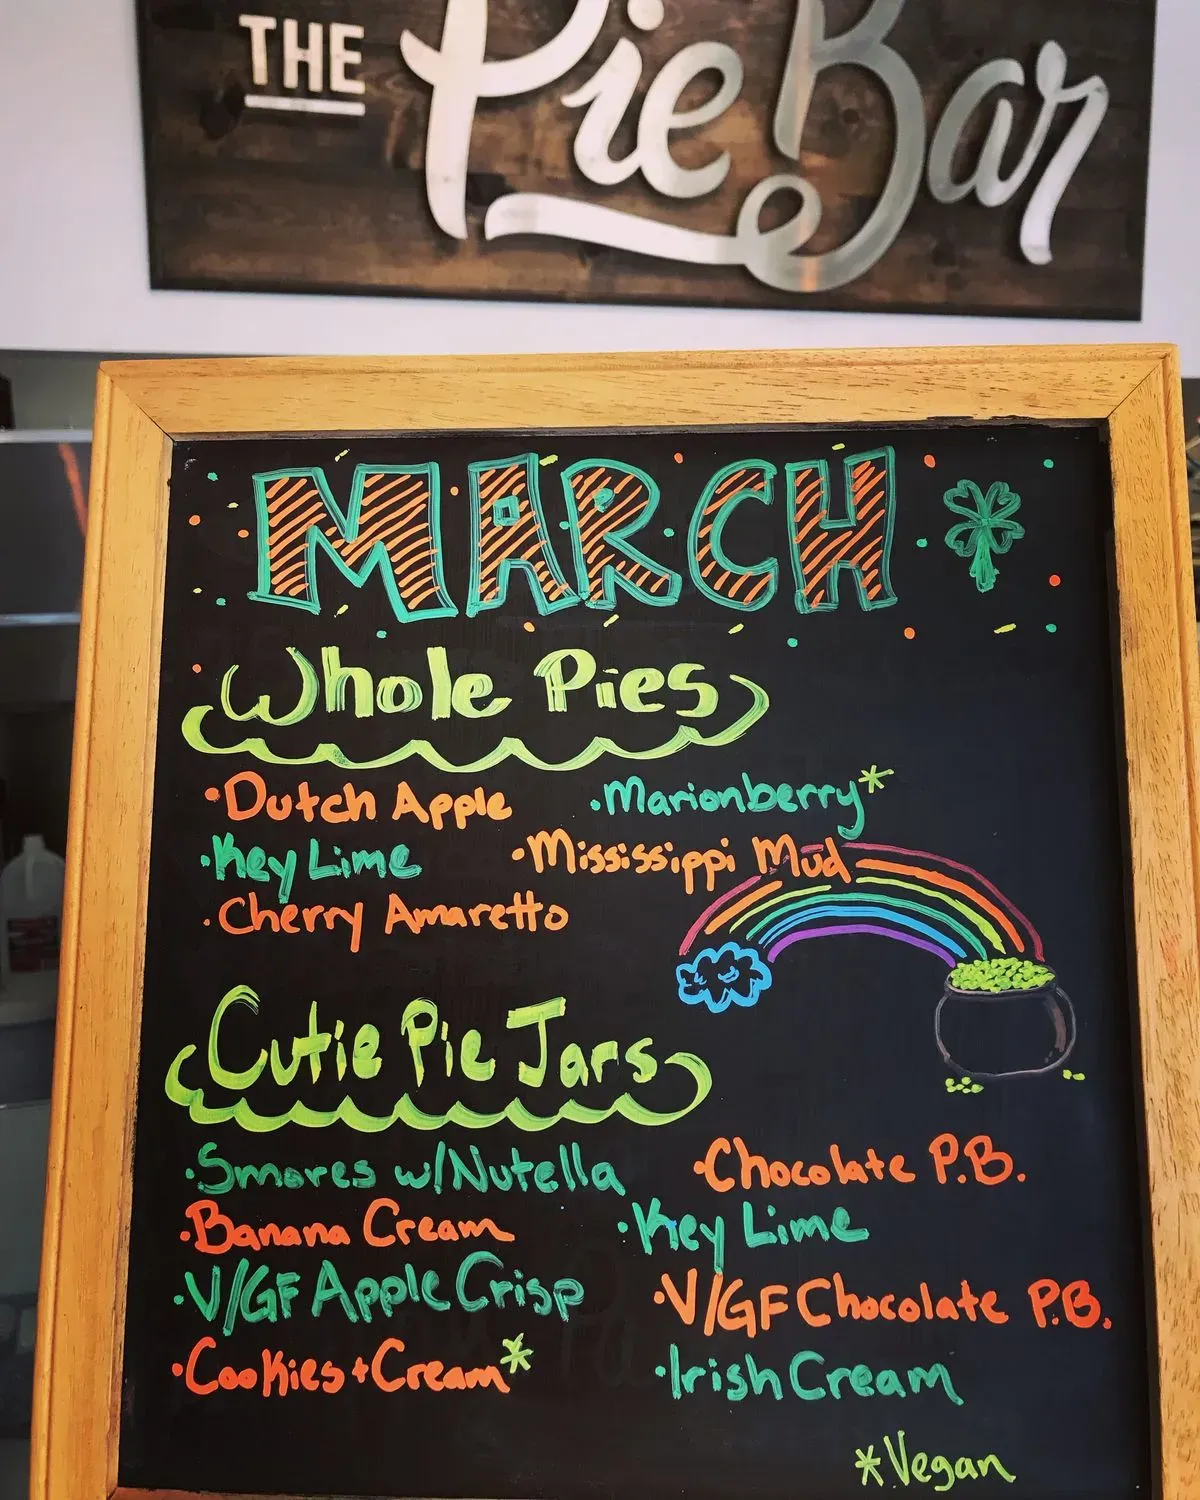 THE Pie Bar
MARCH
Whole Pies
• Dutch Apple • Marionberry*
• Key Lime • Mississippi Mud
• Cherry Amaretto
Cutie Pie Jars
• Smores w/Nutella • Chocolate P.B.
• Banana Cream • Key Lime
• V/GF Apple Crisp • V/GF Chocolate P.B.
• Cookies + Cream* • Irish Cream
*Vegan